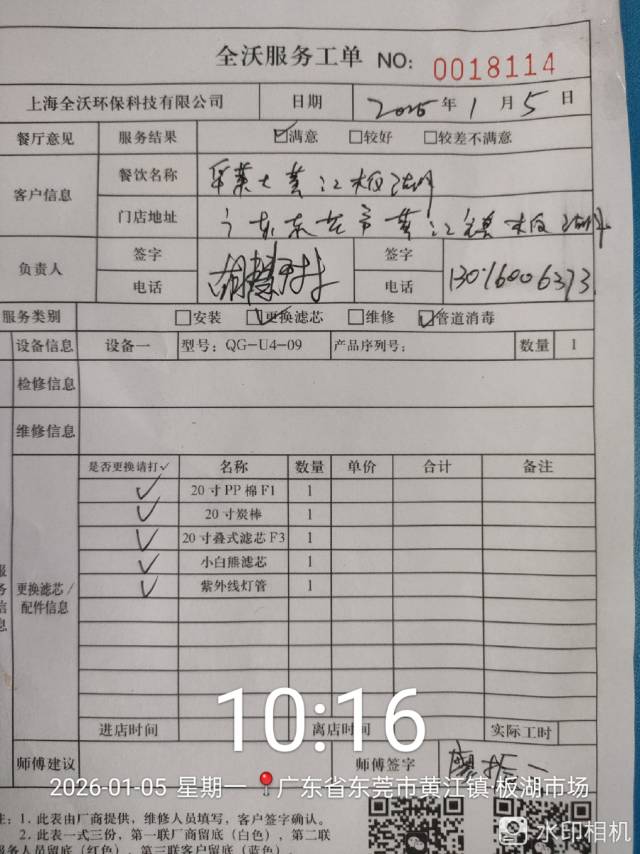 全沃服务工单 NO: 0018114
上海全沃环保科技有限公司 日期 年 1 月 5 日
餐厅意见 服务结果 ☑满意 □较好 □较差不满意
客户信息 餐饮名称 黄江板湖
门店地址 广东东莞市黄江镇板湖
负责人 签字 签字
电话 电话 13016006373
服务类别 □安装 ☑更换滤芯 □维修 ☑管道消毒
设备信息 设备一 型号: QG-U4-09 产品序列号: 数量 1
检修信息
维修信息
是否更换请打✓ 名称 数量 单价 合计 备注
✓ 20寸PP棉F1 1
✓ 20寸炭棒 1
✓ 20寸叠式滤芯F3 1
✓ 小白熊滤芯 1
✓ 紫外线灯管 1
更换滤芯/
配件信息
10:16
进店时间 离店时间 实际工时
师傅建议 师傅签字
2026-01-05 星期一 广东省东莞市黄江镇·板湖市场
注: 1. 此表由厂商提供, 维修人员填写, 客户签字确认。
2. 此表一式三份, 第一联厂商留底(白色), 第二联
服务人员留底(红色), 第三联客户留底(蓝色)。
水印相机